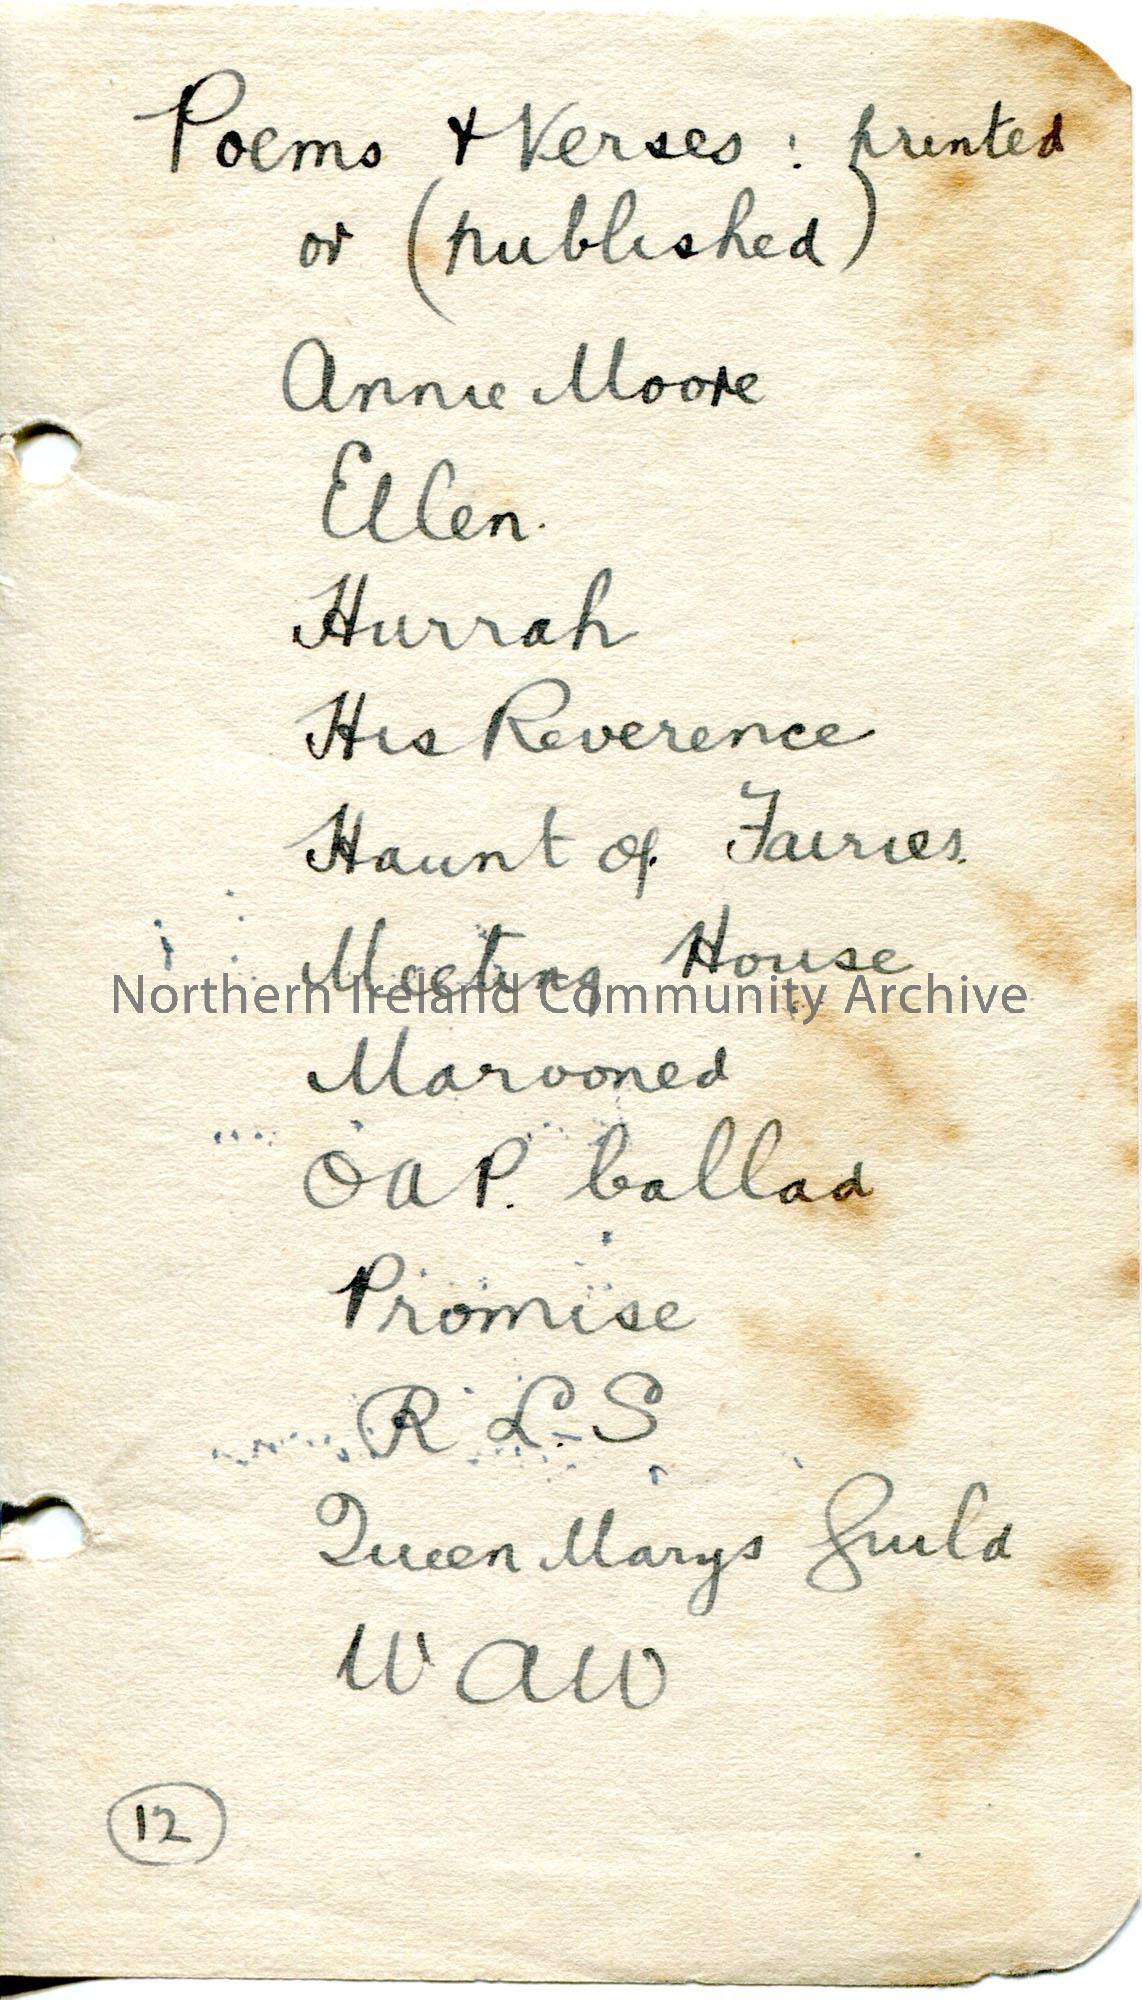 Poems & Verses : printed
or (published)
Annie Moore
Ellen.
Hurrah
His Reverence
Haunt of Fairies.
Meeting House
Northern Ireland Community Archive
Marooned
O A P. ballad
Promise
R L. S
Queen Marys Guild
W A W
12